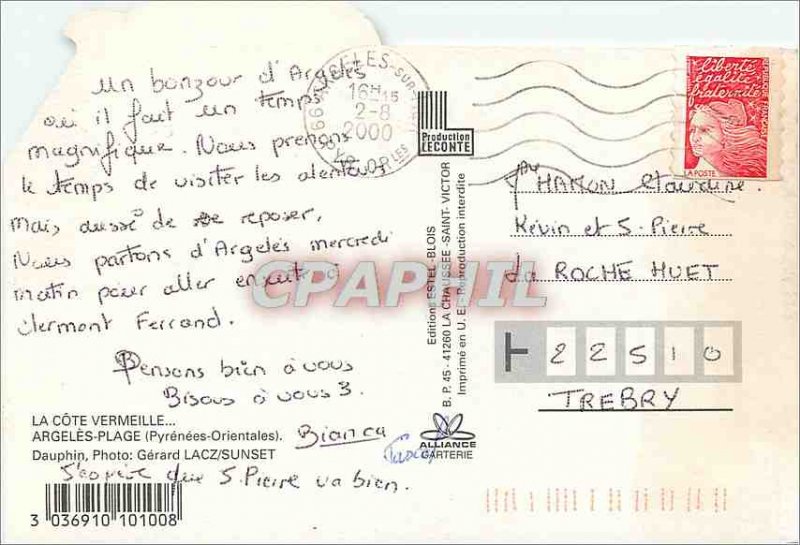 un bonjour d'Argelès
où il fait un temps
magnifique. Nous prenons
le temps de visiter les alentours
mais aussi de se reposer.
Nous partons d'Argelès mercredi
matin pour aller ensuite à
Clermont Ferrand.
Pensons bien à vous
Bisous à vous 3.
Bianca
J'espère que J. Pierre va bien.
LA CÔTE VERMEILLE...
ARGELÈS-PLAGE (Pyrénées-Orientales).
Dauphin, Photo: Gérard LACZ/SUNSET
3 036910 101008
66 ARGELES-SUR-
16H15
2-8
2000
PYR.OR.
Production
LECONTE
Editions ESTEL-BLOIS
B. P. 45 - 41260 LA CHAUSSEE -SAINT- VICTOR
Imprimé en U. E. - Reproduction interdite
ALLIANCE
CARTERIE
liberté
égalité
fraternité
RÉPUBLIQUE FRANÇAISE
LA POSTE
HAMON Claudine.
Kévin et J. Pierre
La ROCHE HUET
22510
TREBRY
CPAPHIL